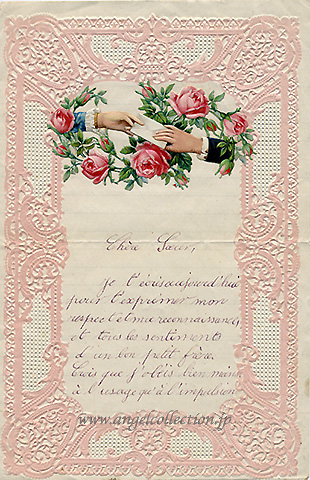 Chère Sœur,
Je t'écris aujourd'hui
pour t'exprimer mon
respect et ma reconnaissance,
et tous les sentiments
d'un bon petit frère.
Crois que j'obéis bien moins
à l'usage qu'à l'impulsion
www.angelcollection.jp